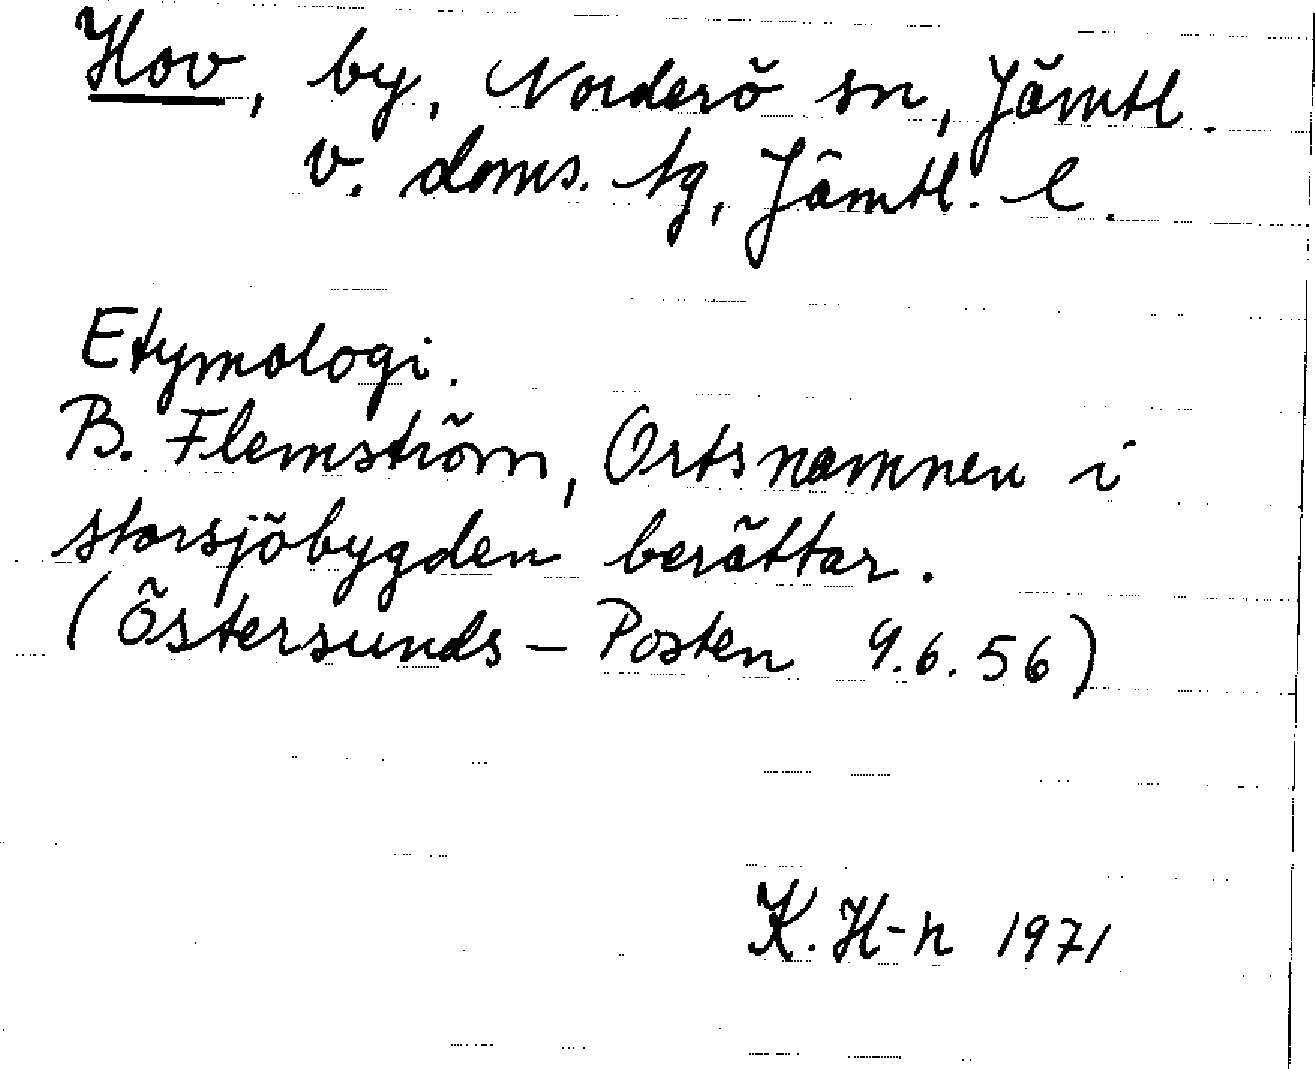 Hov, by, Norderö sn, Jämtl.
v. doms. tg, Jämtl. l.
Etymologi.
B. Flemström, Ortsnamnen i
storsjöbygden berättar.
(Östersunds-Posten 9.6.56)
K. H-n 1971